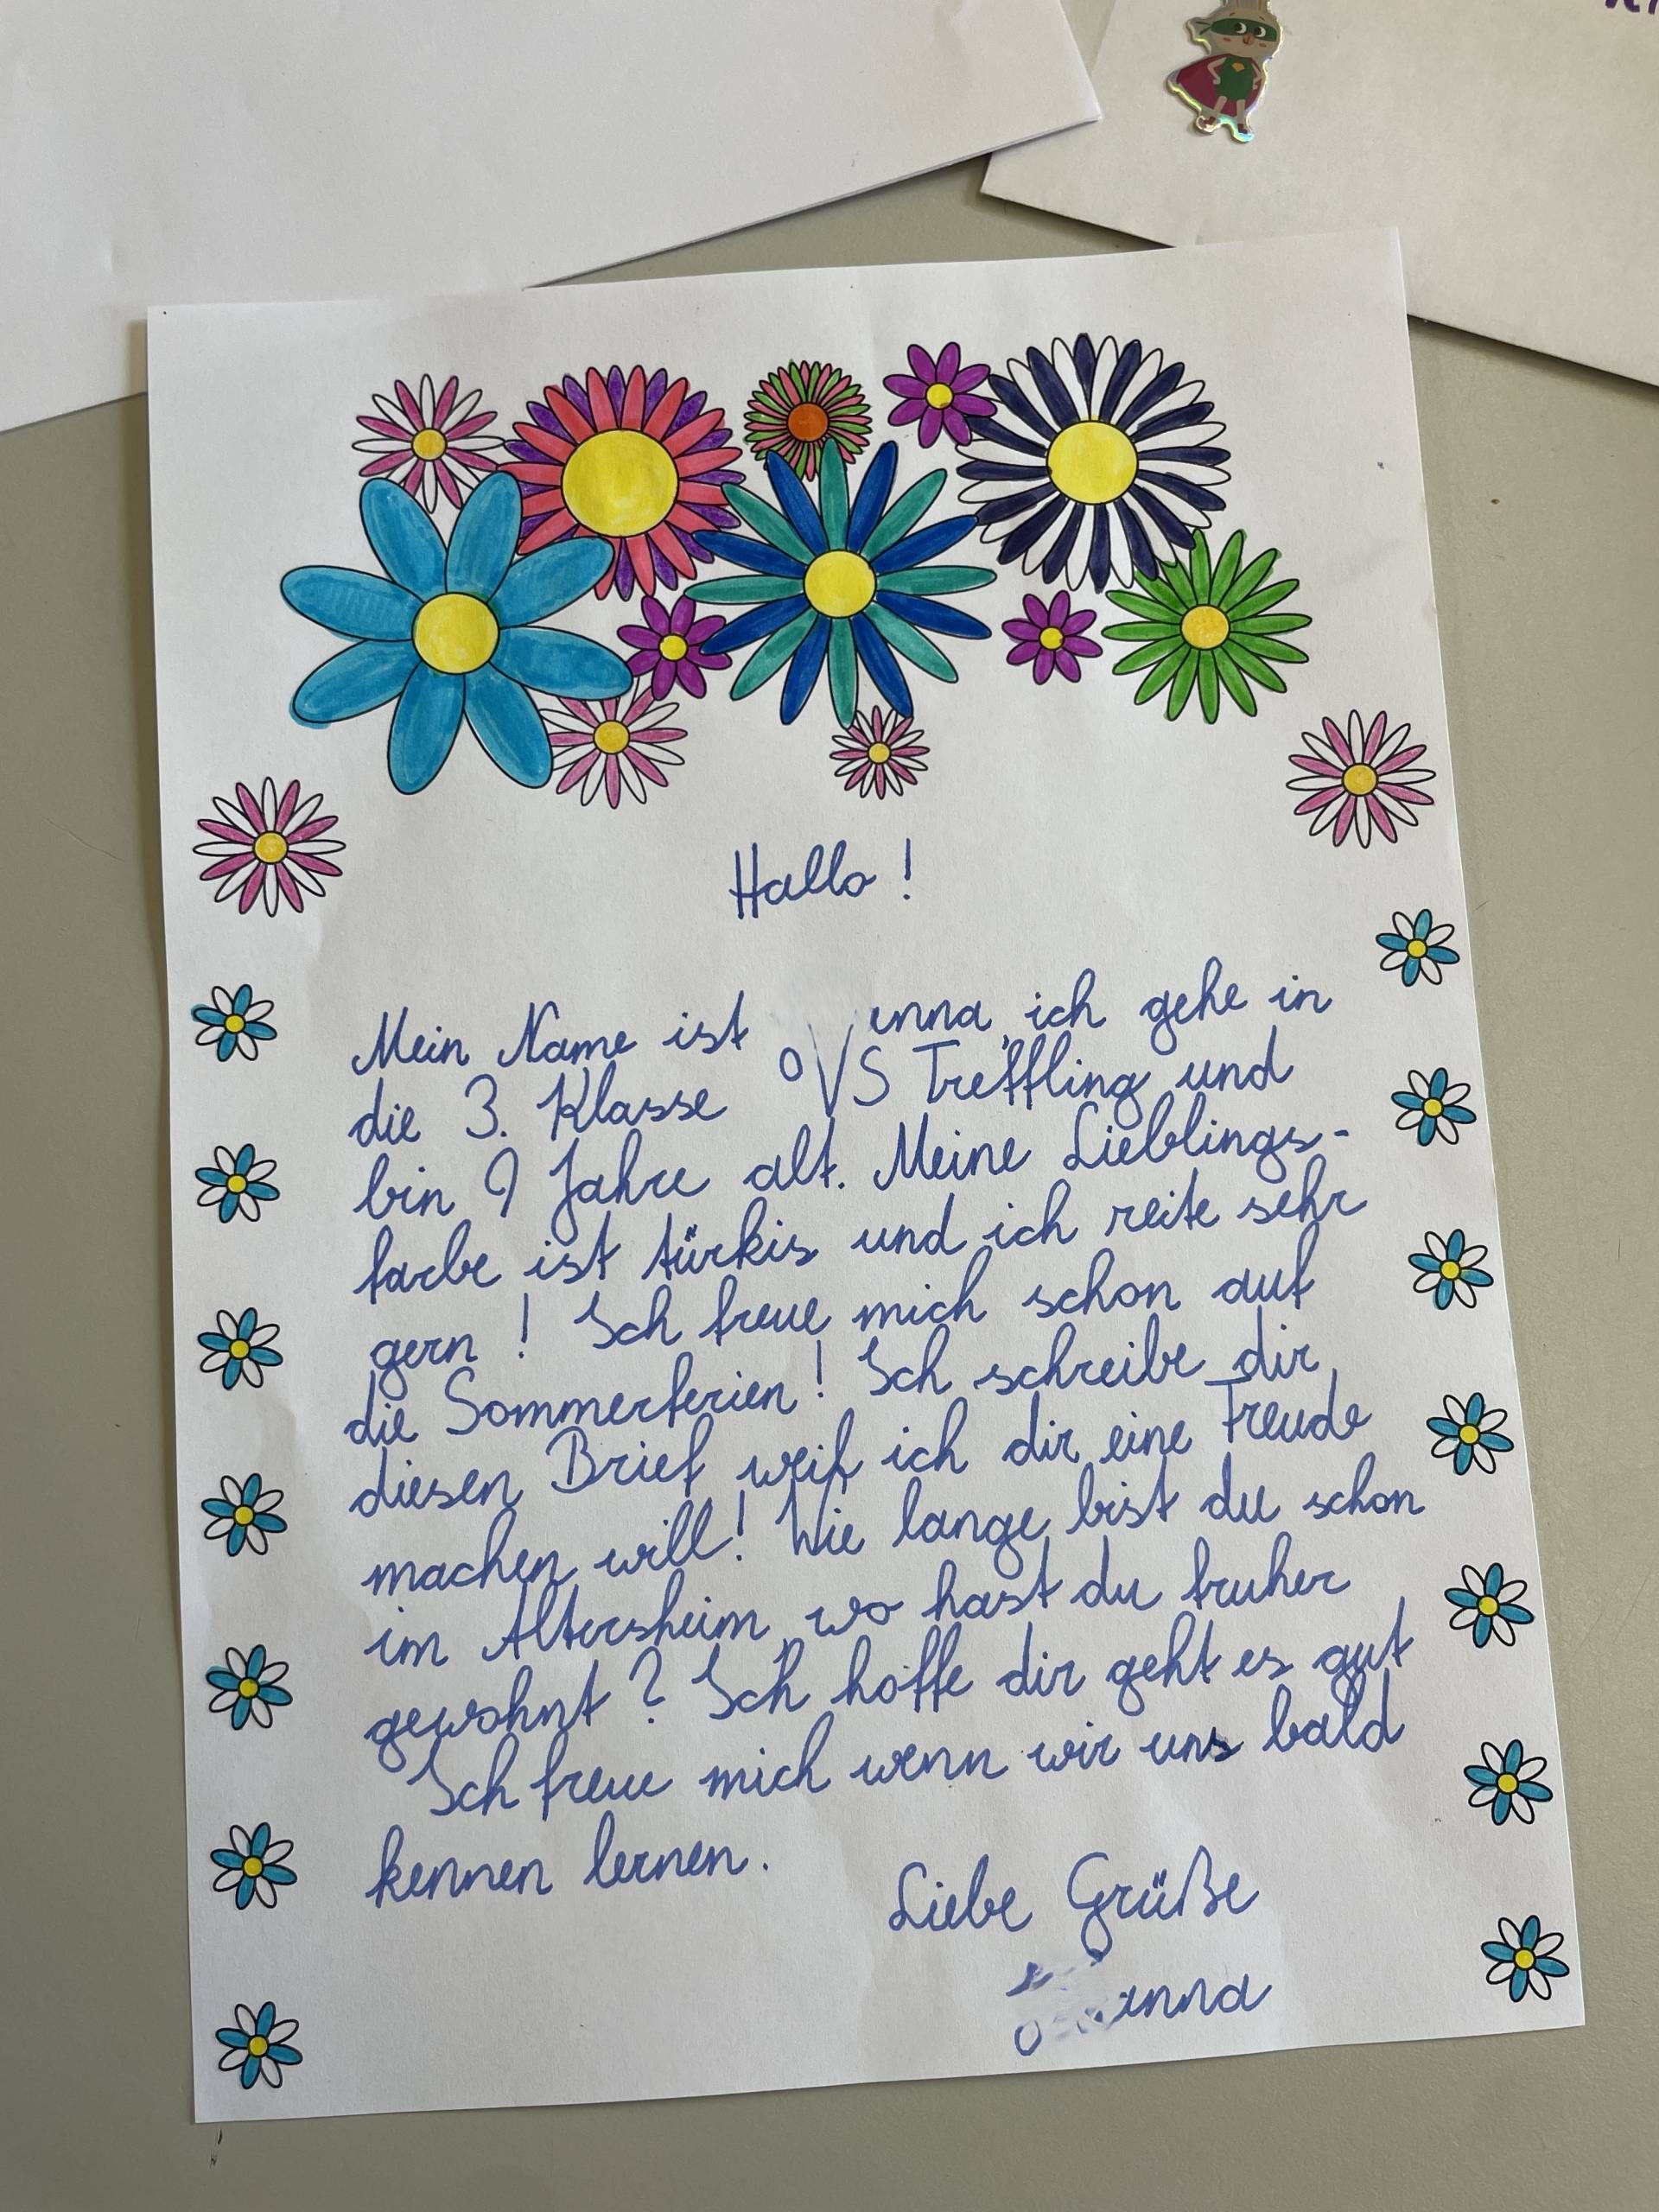 Hallo!
Mein Name ist anna, ich gehe in
die 3. Klasse VS Treffling und
bin 9 Jahre alt. Meine Lieblings-
farbe ist türkis und ich reite sehr
gern! Ich freue mich schon auf
die Sommerferien! Ich schreibe dir
diesen Brief weil ich dir eine Freude
machen will! Wie lange bist du schon
im Altersheim, wo hast du fruher
gewohnt? Ich hoffe dir geht es gut
Ich freue mich wenn wir uns bald
kennen lernen.
Liebe Grüße
anna